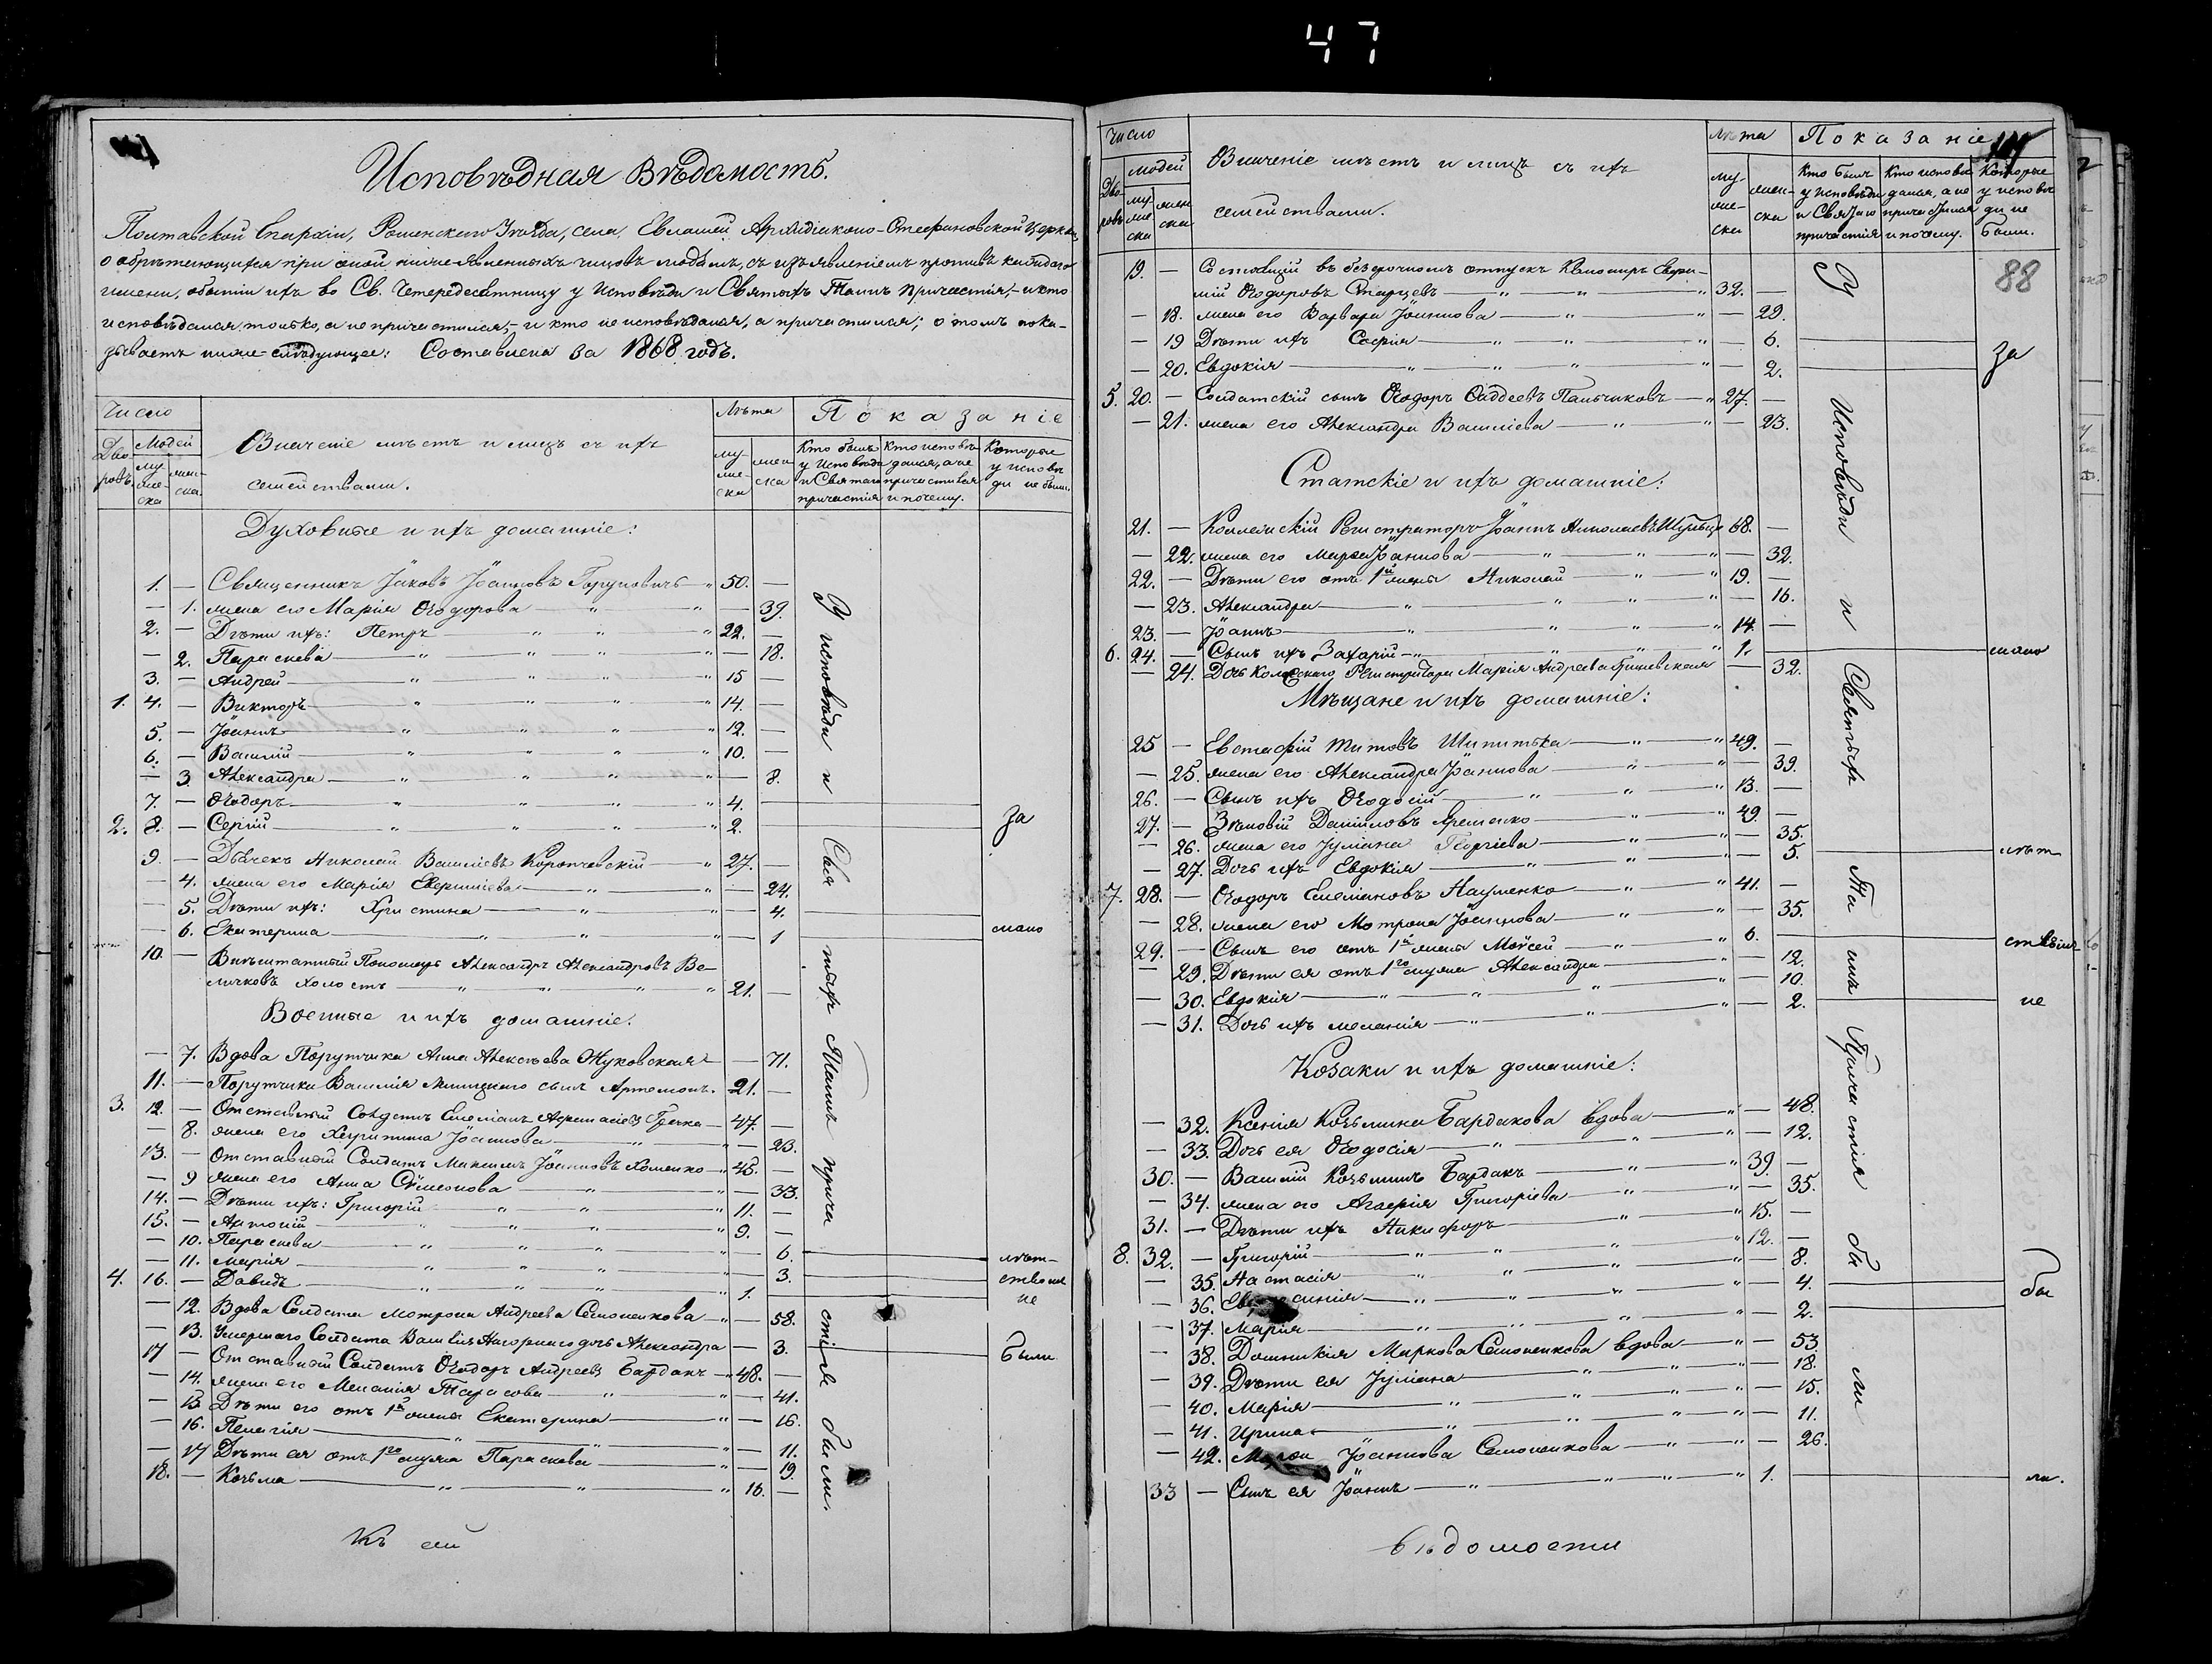 47
Исповѣдная Вѣдомость.
Полтавской Епархіи, Роменскаго Уѣзда, села Евлашей Архидіаконо-Стефановской Церкви,
о обрѣтающихся при оной нижеявленныхъ чиновъ людѣхъ, съ изъявленіемъ противъ каждаго
имени, о бытіи ихъ во Св. Четыредесятницу у Исповѣди и Святыхъ Таинъ Причастія, и кто
исповѣдался только, а не причастился, и кто не исповѣдался, а причастился; о томъ пока-
зываетъ ниже-слѣдующее: Составлена за 1868 годъ.
Число Лѣта Показаніе
Дво-ровъ. Людей Значеніе мѣстъ и лицъ съ ихъ семействами.
му-жес-ка жен-ска му-жес-ка жен-ска
Кто былъ у Исповѣди и Святаго причастія
Кто исповѣдался, а не причастился и почему.
Которые у исповѣди не были.
Духовные и ихъ домашніе:
1. — Священникъ Іаковъ Іоанновъ 50. —
— 1. жена его Марія Ѳеодорова — 39.
2. — Дѣти ихъ: Петръ 22. —
— 2. Параскева — 18.
3. — Андрей 15 —
1. 4. — Викторъ 14. —
5. — Іоаннъ 12. —
6. — Василій 10. —
— 3. Александра — 8.
7. — Ѳеодоръ 4.
2. 8. — Сергій 2.
9. — Дьячекъ Николай Василіевъ Коропчевскій 27. —
— 4. жена его Марія — 24.
— 5. Дѣти ихъ: Христина — 4.
— 6. Екатерина — 1
10. — Внѣштатный Пономарь Александръ Александровъ Ве-
личковъ холостъ 21. —
Военные и ихъ домашніе.
— 7. Вдова Порутчика Анна Алексѣева Жуковская — 71.
11. — Порутчика Василія сынъ Артемонъ. 21. —
3. 12. — Отставный Солдатъ Емеліанъ Аѳанасіевъ Гречка 47. —
— 8. жена его Харитина Іоаннова — 23.
13. — Отставный Солдатъ Максимъ Іоанновъ Хоменко 45. —
— 9 жена его Анна Сѵмеонова — 33.
14. — Дѣти ихъ: Григорій 11. —
15. — Антоній 9. —
— 10. Параскева — 6.
— 11. Марія — 3.
4. 16. — Давидъ 1.
— 12. Вдова Солдата Мотрона Андреева Семоненкова — 58.
— 13. Умершаго Солдата Василія Нагорнаго дочь Александра — 3.
17 — Отставный Солдатъ Ѳеодоръ Андреевъ Бардакъ 48. —
— 14. жена его Меланія Тарасова — 41.
— 15 Дѣти его отъ 1й жены Екатерина — 16.
— 16. Пелагія — 11.
— 17 Дѣти ея отъ 1го мужа Параскева — 19.
18. — Козьма 16. —
У исповѣди и Свя тыхъ Таинъ прича стія были.
за
мало
лѣт-
ствомъ
не
были
Къ сей
Число Лѣта Показаніе
Дво-ровъ людей Значеніе мѣстъ и лицъ съ ихъ семействами.
му-жес-ка жен-ска му-жес-ка жен-ска
Кто былъ у Исповѣди и Святаго причастія
Кто исповѣдался, а не причастился и почему.
Которые у исповѣди не были.
88
19. — Состоящій въ безсрочномъ отпускѣ
Ѳеодоровъ Старцевъ 32. —
— 18. жена его Варвара Іоаннова — 29.
— 19 Дѣти ихъ Софія — 6.
— 20. Евдокія — 2.
5. 20. — Солдатскій сынъ Ѳеодоръ Ѳаддеевъ Пальчиковъ 27. —
— 21. жена его Александра Василіева — 23.
Статскіе и ихъ домашніе:
21. — Коллежскій Регистраторъ Іоаннъ Николаевъ 68. —
— 22. жена его Марѳа Іоаннова — 32.
22. — Дѣти его отъ 1й жены Николай 19. —
— 23. Александра — 16.
23. — Іоаннъ 14. —
6. 24. — Сынъ ихъ Захарій 1.
— 24. Дочь Колежскаго Регистратора Марія Андреева — 32.
Мѣщане и ихъ домашніе:
25 — Евстафій Титовъ Шипитька 49. —
— 25. жена его Александра Іоаннова — 39.
26. — Сынъ ихъ Ѳеодосій 13. —
27. — Зѣновій Даніиловъ Яременко 49. —
— 26. жена его Іуліана Георгіева — 35.
— 27. Дочь ихъ Евдокія — 5.
7. 28. — Ѳеодоръ Емеліановъ Науменко 41. —
— 28. жена его Мотрона Іоаннова — 35.
29. — Сынъ его отъ 1й жены Моѵсей 6.
— 29. Дѣти ея отъ 1го мужа Александра — 12.
— 30. Евдокія — 10.
— 31. Дочь ихъ Меланія — 2.
Козаки и ихъ домашніе:
— 32. Ксенія Козьмина Бардакова вдова — 48.
— 33. Дочь ея Ѳеодосія — 12.
30. — Василій Козьминъ Бардакъ 39. —
— 34. жена его Агафія Григоріева — 35.
31. — Дѣти ихъ Никифоръ 15. —
8. 32. — Григорій 12. —
— 35. Настасія — 8.
— 36. — 4.
— 37. Марія — 2.
— 38. Домникія Маркова Семоненкова вдова — 53.
— 39. Дѣти ея Іуліана — 18.
— 40. Марія — 15.
— 41. Ирина — 11.
— 42. Іоаннова Семоненкова — 26.
33 — Сынъ ея Іоаннъ 1.
У Исповѣди и Святыхъ Та инъ Причастія бы ли
за
мало
лѣт
ствомъ
не
бы
ли.
вѣдомости